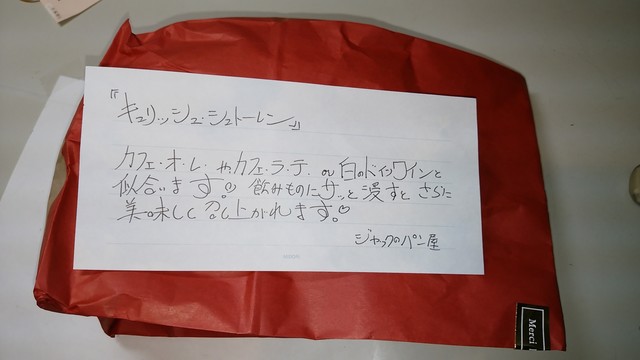 『キュリッシュ・シュトーレン』
カフェ・オ・レ・やカフェ・ラ・テ. or 白のドイツワインと
似合います。♡ 飲みものにサッと浸すと さらに
美味しく召し上がれます。♡
ジャックのパン屋
Merci